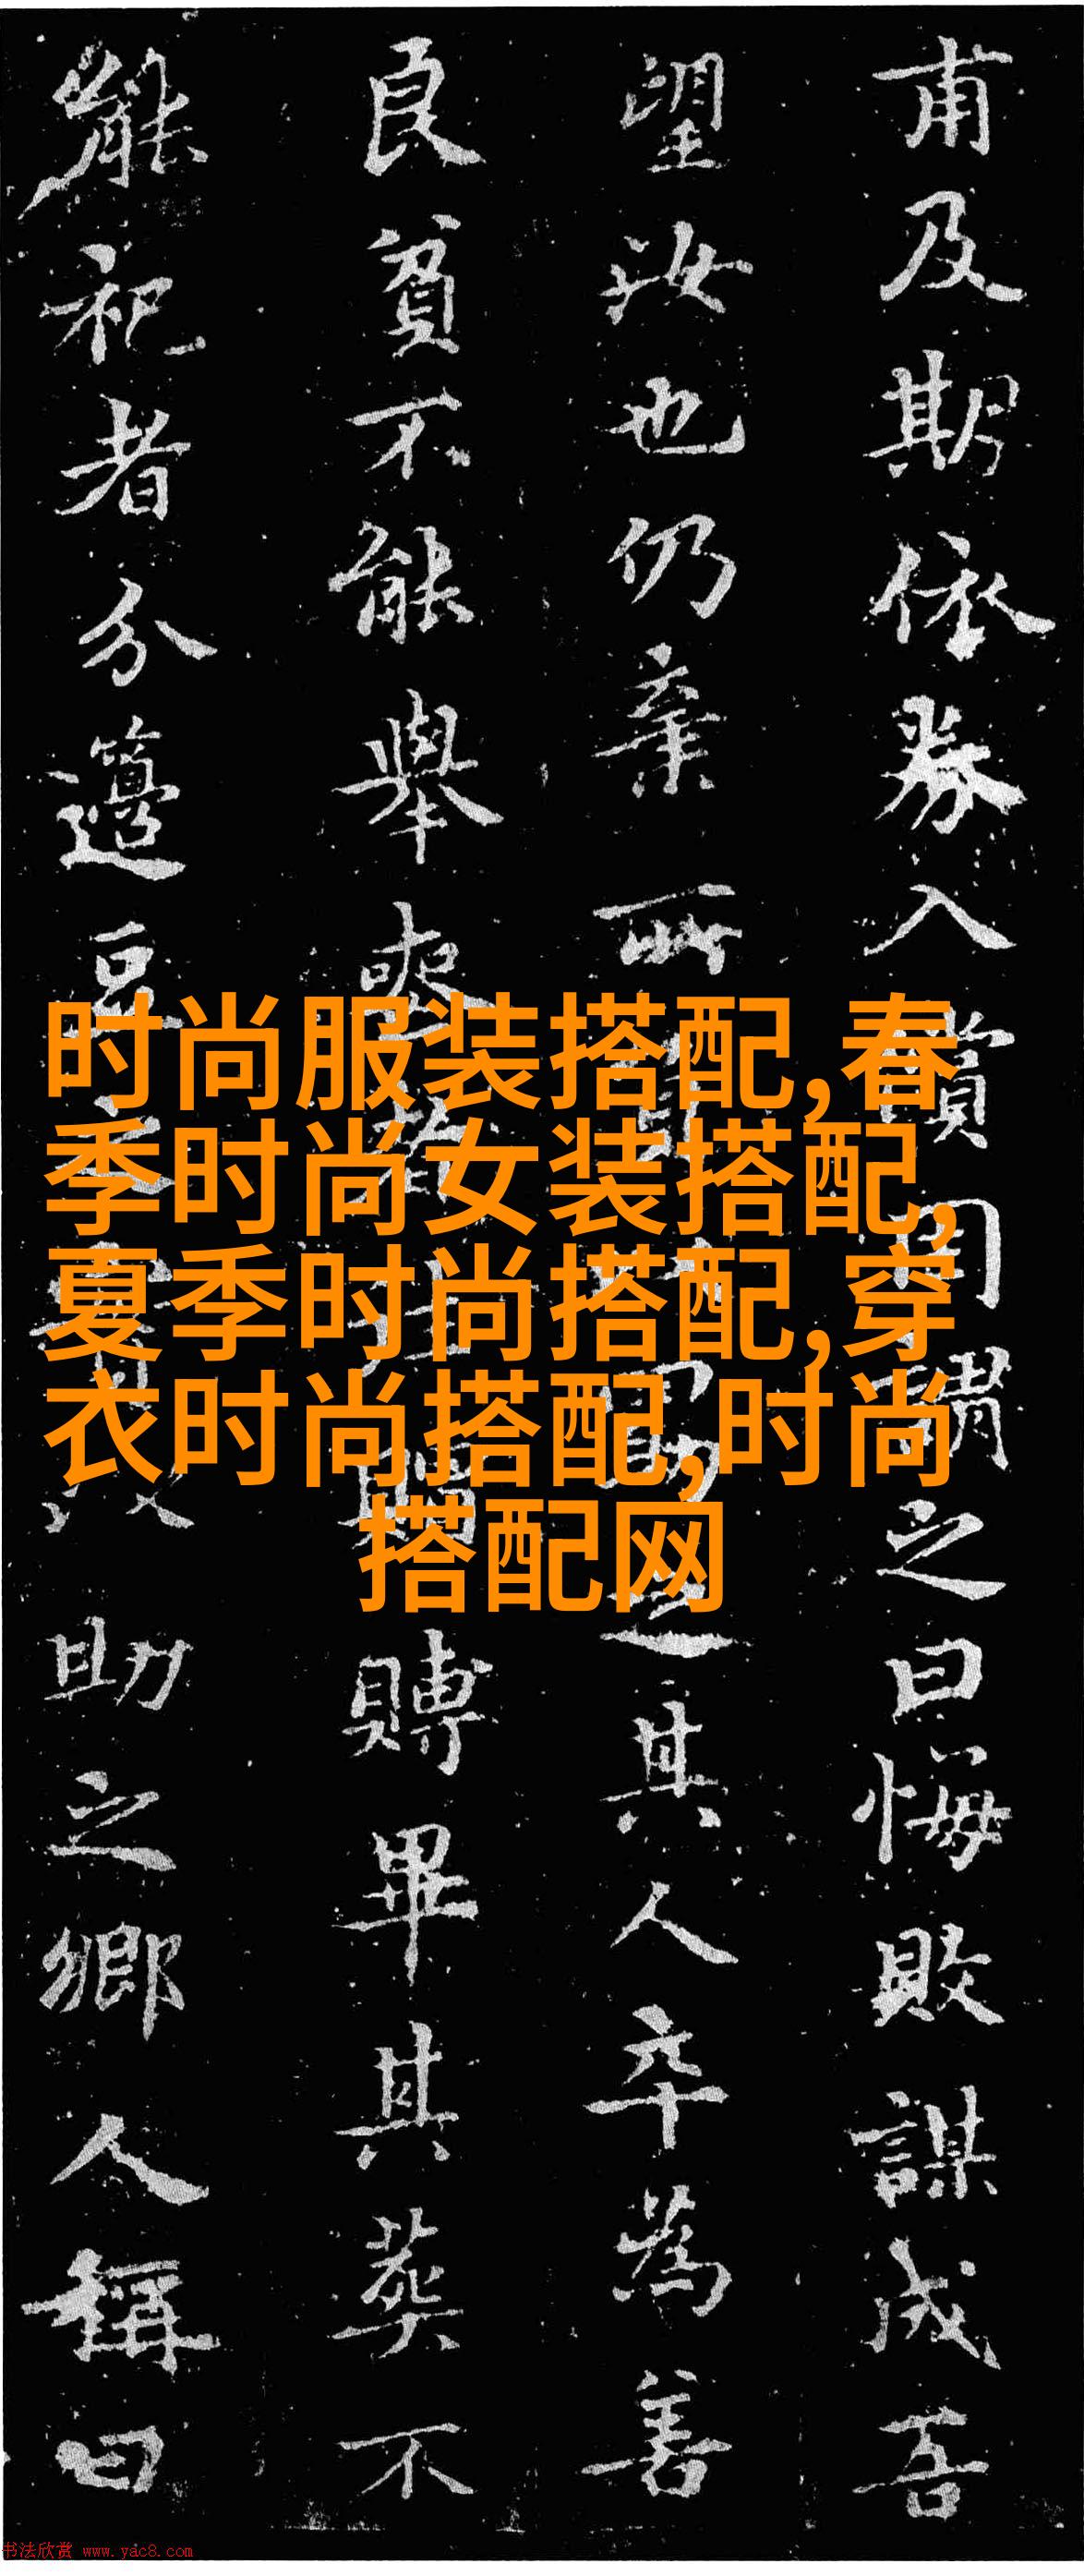 甫及期依券入償固謂之曰悔敗謀成吾
望汝也仍棄所其人卒為善
良貧不能舉喪賻畢其葬不
能祀者分籩豆助之鄉人稱曰
时尚服装搭配,春
季时尚女装搭配,
夏季时尚搭配,穿
衣时尚搭配,时尚
搭配网
书法欣赏 www.yac8.com